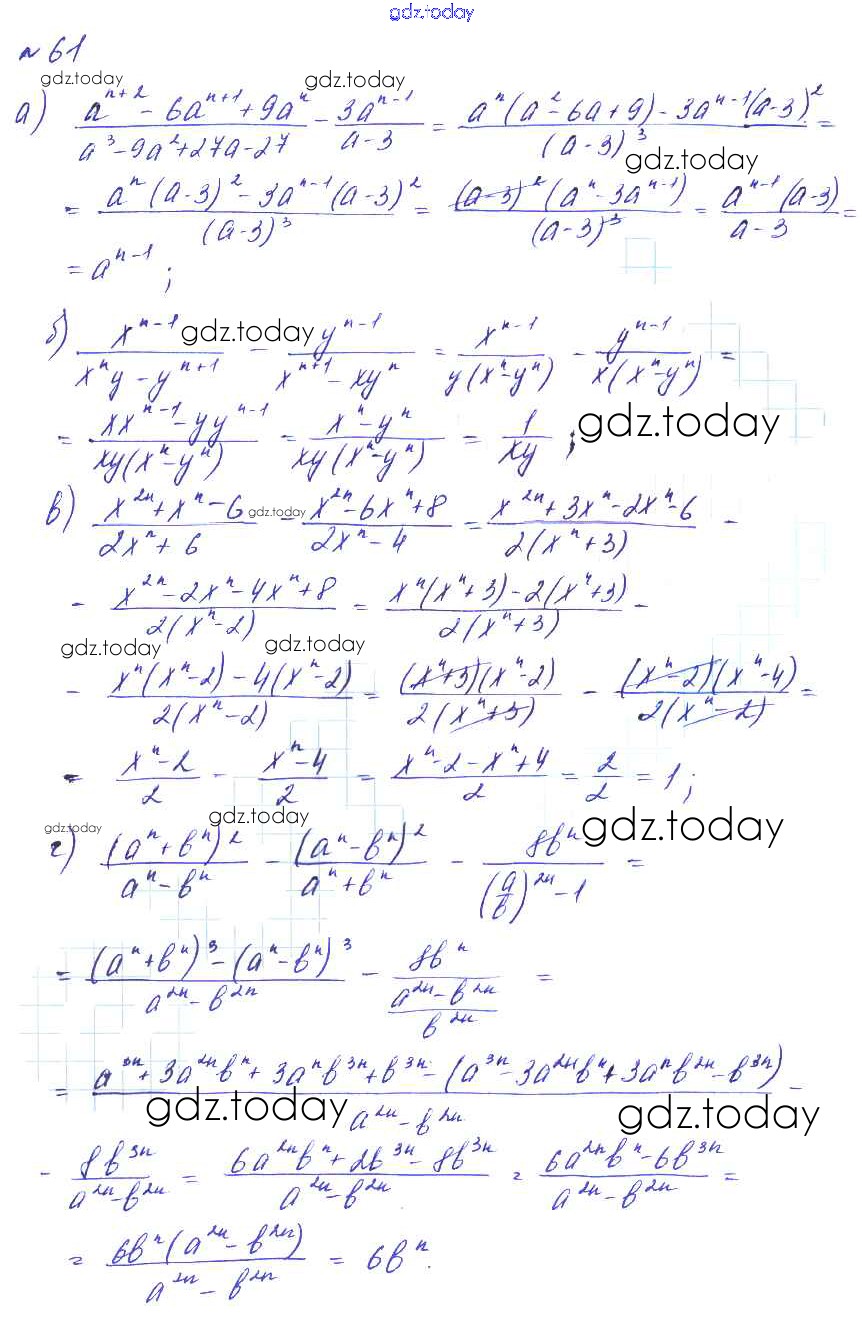 gdz.today
№ 61
gdz.today gdz.today
а) (a^{n+2} - 6a^{n+1} + 9a^n)/(a^3 - 9a^2 + 27a - 27) - 3a^{n-1}/(a-3) = (a^n(a^2 - 6a + 9) - 3a^{n-1}(a-3)^2)/(a-3)^3 =
gdz.today
= (a^n(a-3)^2 - 3a^{n-1}(a-3)^2)/(a-3)^3 = ((a-3)^2(a^n - 3a^{n-1}))/(a-3)^3 = (a^{n-1}(a-3))/(a-3) =
= a^{n-1};
б) x^{n-1}/(x^n y - y^{n+1}) - y^{n-1}/(x^{n+1} - xy^n) = x^{n-1}/(y(x^n - y^n)) - y^{n-1}/(x(x^n - y^n)) =
gdz.today
= (xx^{n-1} - yy^{n-1})/(xy(x^n - y^n)) = (x^n - y^n)/(xy(x^n - y^n)) = 1/(xy);
gdz.today
в) (x^{2n} + x^n - 6)/(2x^n + 6) - (x^{2n} - 6x^n + 8)/(2x^n - 4) = (x^{2n} + 3x^n - 2x^n - 6)/(2(x^n + 3)) -
gdz.today
- (x^{2n} - 2x^n - 4x^n + 8)/(2(x^n - 2)) = (x^n(x^n + 3) - 2(x^n + 3))/(2(x^n + 3)) -
gdz.today gdz.today
- (x^n(x^n - 2) - 4(x^n - 2))/(2(x^n - 2)) = ((x^n + 3)(x^n - 2))/(2(x^n + 3)) - ((x^n - 2)(x^n - 4))/(2(x^n - 2)) =
= (x^n - 2)/2 - (x^n - 4)/2 = (x^n - 2 - x^n + 4)/2 = 2/2 = 1;
gdz.today gdz.today gdz.today
г) (a^n + b^n)^2/(a^n - b^n) - (a^n - b^n)^2/(a^n + b^n) - 8b^n/((a/b)^{2n} - 1) =
= ((a^n + b^n)^3 - (a^n - b^n)^3)/(a^{2n} - b^{2n}) - 8b^n/((a^{2n} - b^{2n})/b^{2n}) =
= (a^{3n} + 3a^{2n}b^n + 3a^n b^{3n} + b^{3n} - (a^{3n} - 3a^{2n}b^n + 3a^n b^{2n} - b^{3n}))/(a^{2n} - b^{2n}) -
gdz.today gdz.today
- 8b^{3n}/(a^{2n} - b^{2n}) = (6a^{2n}b^n + 2b^{3n} - 8b^{3n})/(a^{2n} - b^{2n}) = (6a^{2n}b^n - 6b^{3n})/(a^{2n} - b^{2n}) =
= (6b^n(a^{2n} - b^{2n}))/(a^{2n} - b^{2n}) = 6b^n.